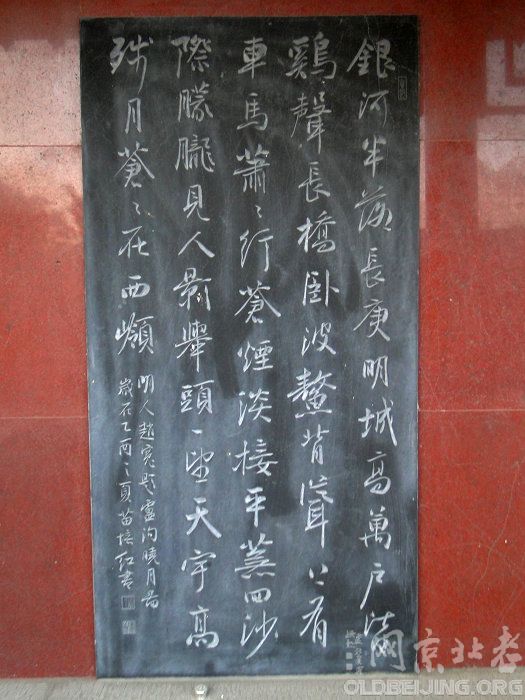 銀河半落長庚明城高萬戶滿
鷄聲長橋卧波鰲背聳上有
車馬蕭〻行蒼煙淡接平蕪四沙
際朦朧見人影舉頭一望天宇高
殘月蒼〻在西嶺
明人趙寬題盧溝曉月圖
歲在乙酉之夏苗培红書
老北京网
OLDBEIJING.ORG